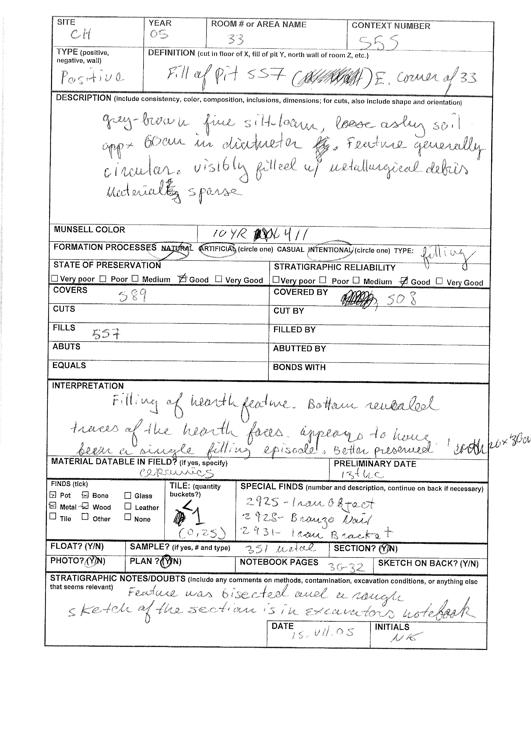 SITE YEAR ROOM # or AREA NAME CONTEXT NUMBER
CH 05 33 555
TYPE (positive, negative, wall) DEFINITION (cut in floor of X, fill of pit Y, north wall of room Z, etc.)
Positive Fill of Pit 557 E. corner of 33
DESCRIPTION (include consistency, color, composition, inclusions, dimensions; for cuts, also include shape and orientation)
grey-brown fine silt-loam, loose ashy soil
appx 60cm in diameter. Feature generally
circular. visibly filled w/ metallurgical debris
Material sparse
MUNSELL COLOR 10YR 4/1
FORMATION PROCESSES NATURAL ARTIFICIAL (circle one) CASUAL INTENTIONAL (circle one) TYPE: filling
STATE OF PRESERVATION STRATIGRAPHIC RELIABILITY
Very poor Poor Medium Good Very Good Very poor Poor Medium Good Very Good
COVERS 589 COVERED BY 508
CUTS CUT BY
FILLS 557 FILLED BY
ABUTS ABUTTED BY
EQUALS BONDS WITH
INTERPRETATION
Filling of hearth feature. Bottom revealed
traces of the hearth faces. appears to have
been a single filling episode. Better preserved 20 x 30cm
MATERIAL DATABLE IN FIELD? (if yes, specify) PRELIMINARY DATE
ceramics 13thc
FINDS (tick) TILE: (quantity buckets?) SPECIAL FINDS (number and description, continue on back if necessary)
Pot Bone Glass <1 2925 - Iron Object
Metal Wood Leather 2928 - Bronze Nail
Tile Other None (0,25) 2931 - Iron Bracket
FLOAT? (Y/N) SAMPLE? (if yes, # and type) 351 metal SECTION? (Y/N)
PHOTO? (Y/N) PLAN ? (Y/N) NOTEBOOK PAGES 30-32 SKETCH ON BACK? (Y/N)
STRATIGRAPHIC NOTES/DOUBTS (Include any comments on methods, contamination, excavation conditions, or anything else that seems relevant)
Feature was bisected and a rough
sketch of the section is in excavators notebook
DATE 15.VII.05 INITIALS NK